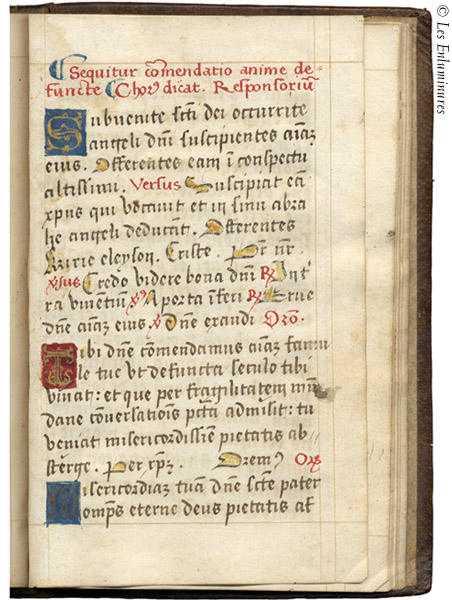 Sequitur cōmendatio anime de-
functe Chorꝰ dicat. Responsoriū
Subuenite scti dei occurrite
angeli dnī suscipientes aiaꝫ
eius. Offerentes eam ī conspectu
altissimi. Versus Suscipiat eā
xpus qui vocauit et in sinu abra
he angeli deducant. Offerentes
Kirie eleyson. Criste. Pr̄ nr̄
Credo videre bona dnī
ra viuentiū A porta īferi Erue
dnē aiaꝫ eius Dnē exaudi Orō.
Tibi dnē cōmendamus aiaꝫ famu
le tue vt defuncta seculo tibi
viuat: et que per fragilitatem mū
dane conuersationis pctā admisit: tu
veniat misericordissīe pietatis ab
sterge. Per xpꝫ. Oremꝰ
Misericordiaꝫ tuā dnē scte pater
omps eterne deus pietatis af
© Les Enluminures